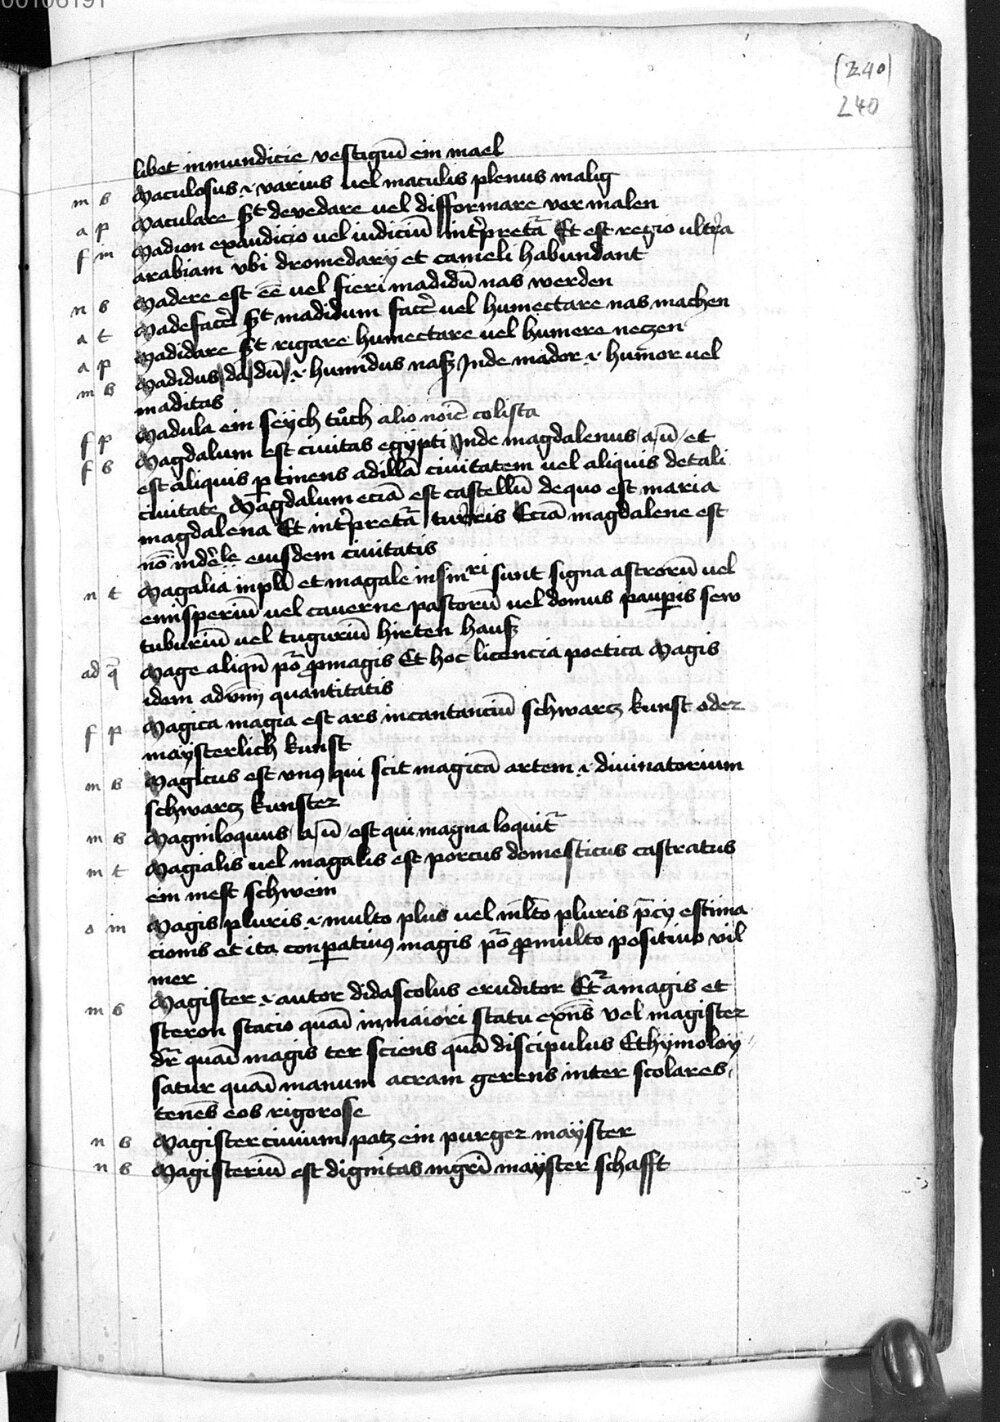 00106191
(240)
240
libet inmundicie vestigiū ein mael
m b Maculosus .i. varius vel maculis plenus malig
a p Maculare est devedare vel difformare vor malen
f m Madion exaudicio vel iudiciū intp̄retat̄ Et est regio ultra
arabiam vbi dromedarij et cameli habundant
n b Madere est eē vel fieri madidū nas werden
a t Madefacē est madidum facē vel humectare nas machen
a p Madidare est rigare humectare vel humere neczen
m b Madidus da dū .i. humidus nasz Inde mador .i. humor vel
maditas
f p Madula ein seych tůch alio noīe colista
f b Magdalum est ciuitas egypti Inde magdalenus a ū et
est aliquis ptinens ad illā ciuitatem vel aliquis de tali
ciuitate Magdalum eciā est castellū de quo est maria
magdalena Et intp̄retat̄ turris Eciā magdalene est
nō indēle eiusdem ciuitatis
n t Magalia in pl̄i et magale in sin͞ri sunt signa astrorū vel
emisperiū vel cauerne pastorū vel domus paupis sew
tuburiū vel tuguriū hirten hausz
ad q̄ Mage aliqn̄ pō p magis Et hoc licencia poetica Magis
idem aduīm quantitatis
f p Magica magia est ars incantanciū schwarcz kunst oder
maysterlich kunst
m b Magicus est vnus qui scit magicā artem .i. diuinatorium
schwarcz kunster
m b Magniloquus a ū est qui magna loquit̄
m t Magialis vel magalis est porcus domesticus castratus
ein mest schwein
o m Magis pluris .i. multo plus vel ml̄to pluris p̄cij estima
cionis et ita conparatiuus magis pō p multo positiuo vil
mer
m b Magister .i. autor didascolus eruditor Et̄ a magis et
steron stacio quasi in maiori statu exn̄s vel magister
dr̄ quasi magis ter sciens quā discipulus Ethymoloy
satur quasi manum acram gerens inter scolares
tenēs eos rigorose
n b Magister ciuium patz ein purger mayster
n b Magisteriū est dignitas mgr̄i mayster schafft